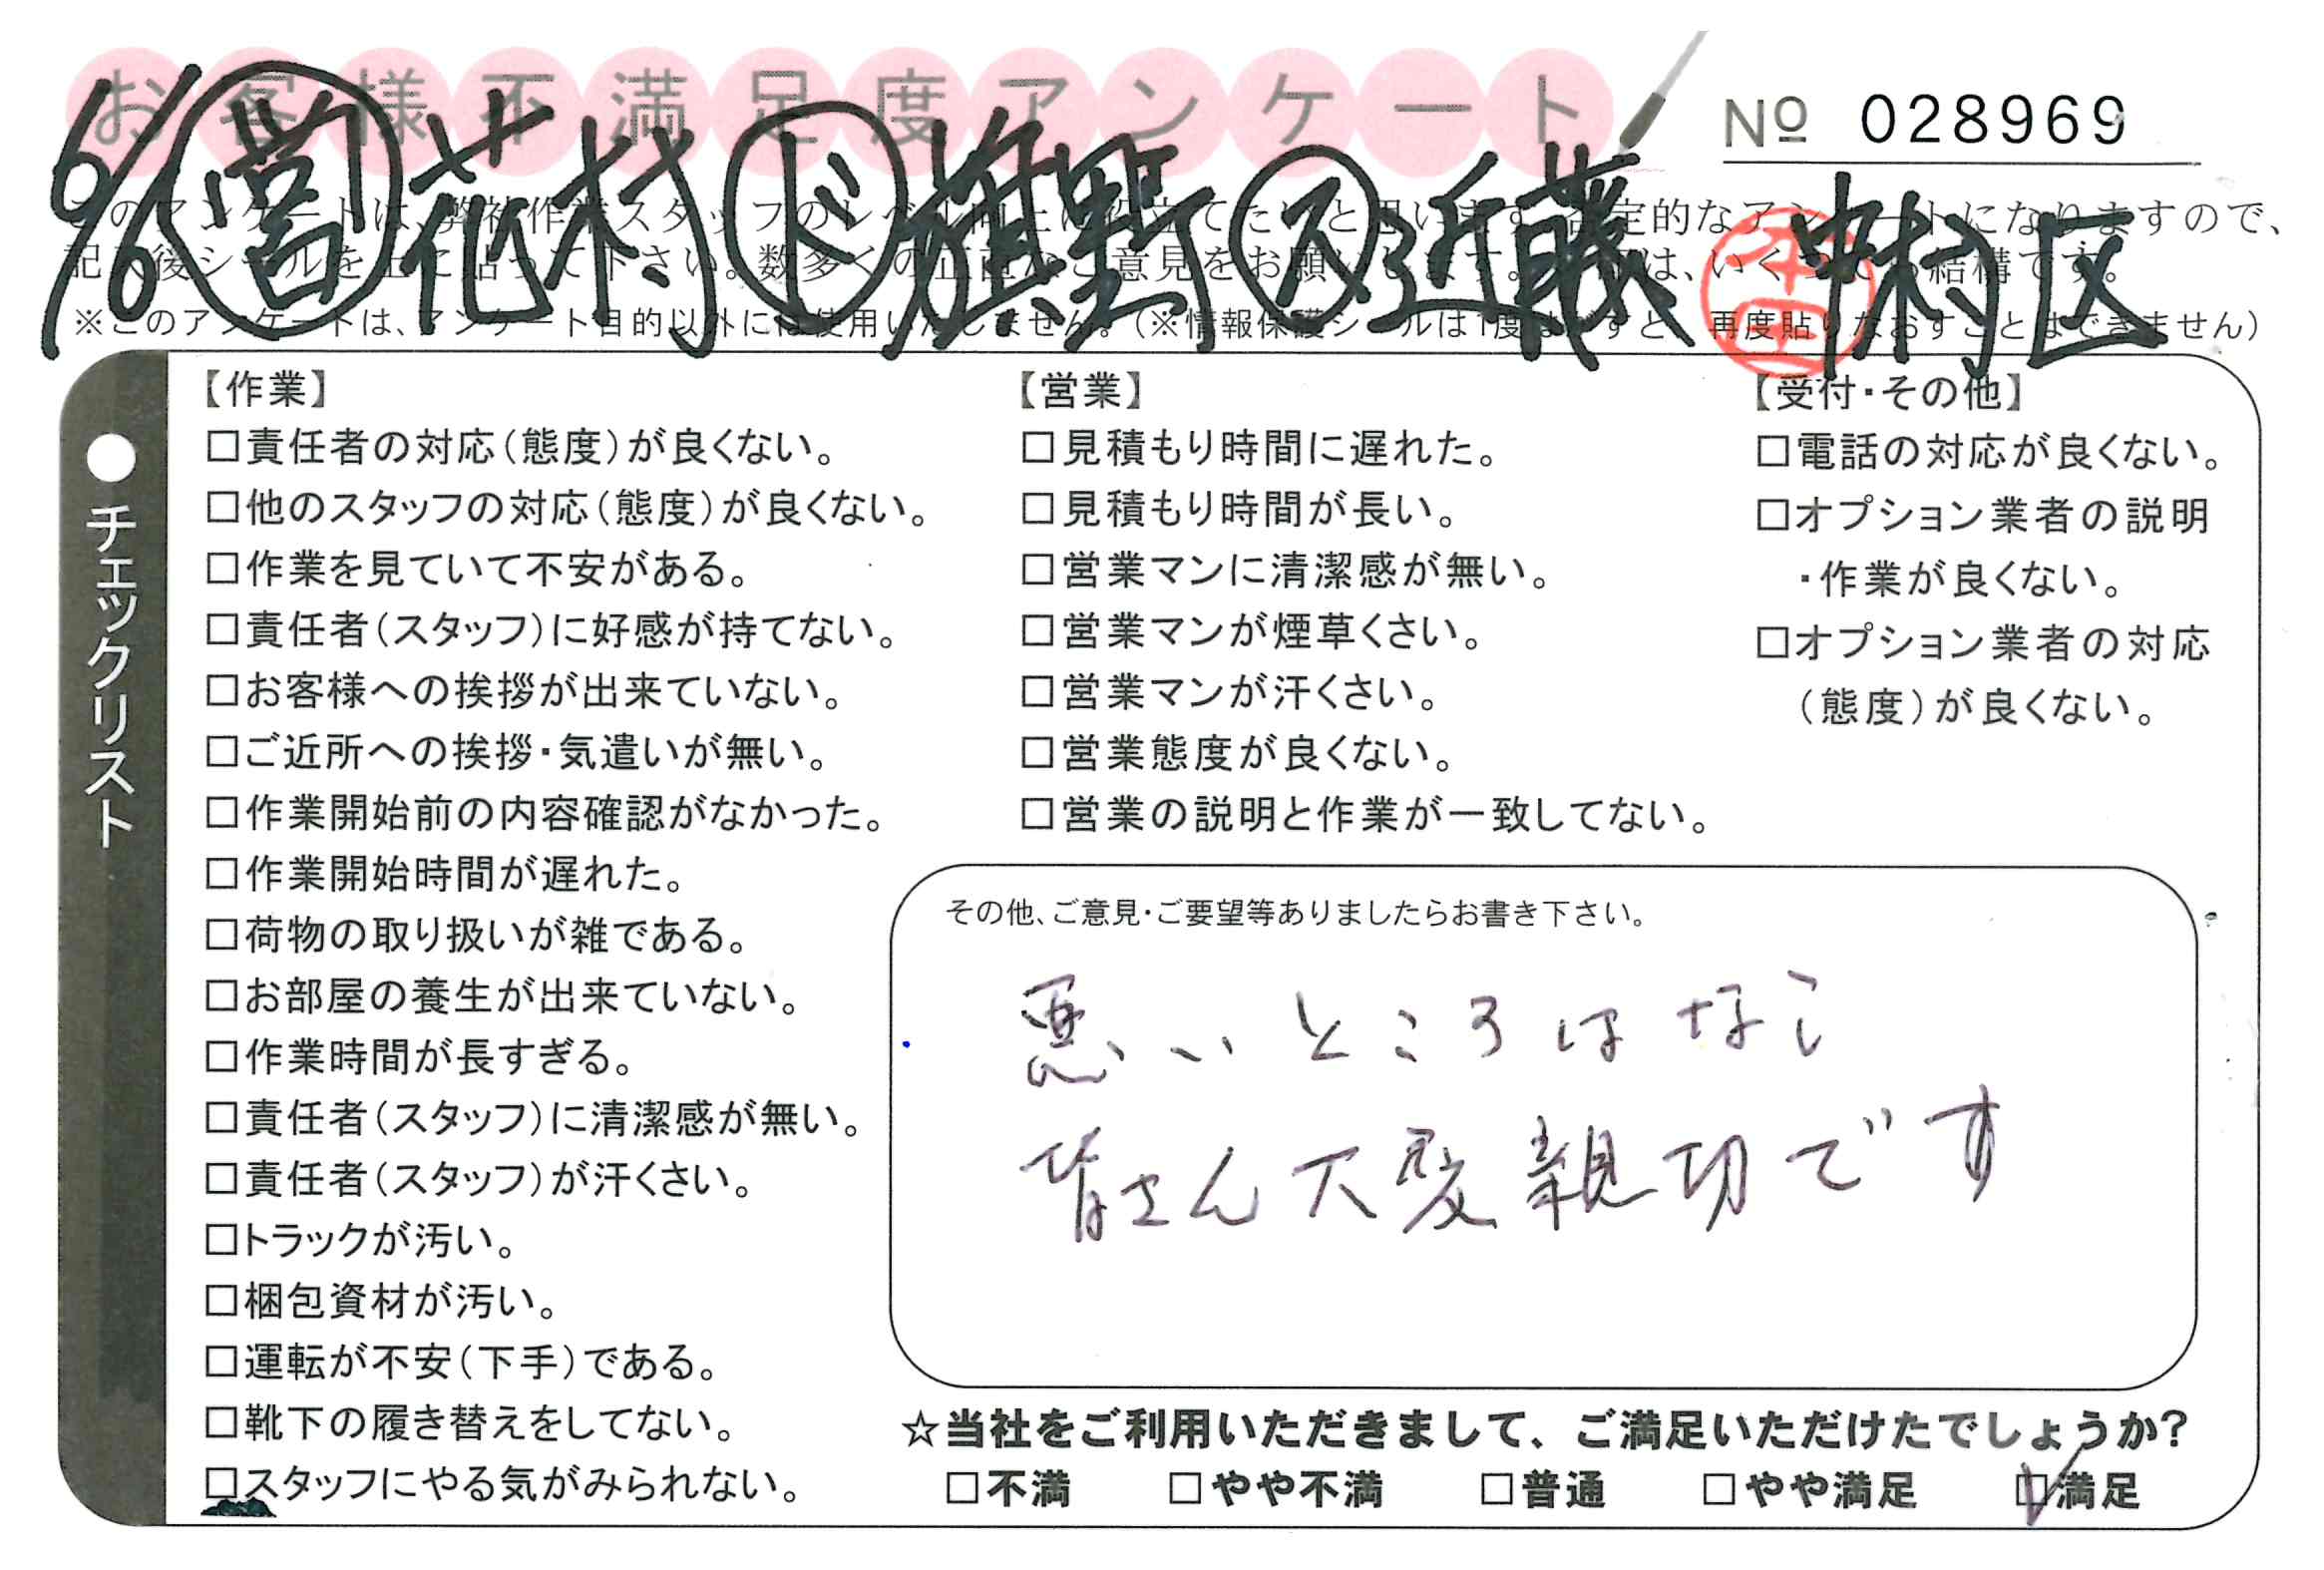 お客様不満足度アンケート
No 028969
6/6 営 花村 ド 旗野 ス 近藤 中村区
※このアンケートは、アンケート目的以外には使用いたしません。(※情報保護シールは1度はがすと、再度貼りなおすことはできません)
●チェックリスト
【作業】
□責任者の対応(態度)が良くない。
□他のスタッフの対応(態度)が良くない。
□作業を見ていて不安がある。
□責任者(スタッフ)に好感が持てない。
□お客様への挨拶が出来ていない。
□ご近所への挨拶・気遣いが無い。
□作業開始前の内容確認がなかった。
□作業開始時間が遅れた。
□荷物の取り扱いが雑である。
□お部屋の養生が出来ていない。
□作業時間が長すぎる。
□責任者(スタッフ)に清潔感が無い。
□責任者(スタッフ)が汗くさい。
□トラックが汚い。
□梱包資材が汚い。
□運転が不安(下手)である。
□靴下の履き替えをしてない。
□スタッフにやる気がみられない。
【営業】
□見積もり時間に遅れた。
□見積もり時間が長い。
□営業マンに清潔感が無い。
□営業マンが煙草くさい。
□営業マンが汗くさい。
□営業態度が良くない。
□営業の説明と作業が一致してない。
【受付・その他】
□電話の対応が良くない。
□オプション業者の説明
・作業が良くない。
□オプション業者の対応
(態度)が良くない。
その他、ご意見・ご要望等ありましたらお書き下さい。
悪いところはなし
皆さん大変親切です
☆当社をご利用いただきまして、ご満足いただけたでしょうか?
□不満 □やや不満 □普通 □やや満足 ☑満足